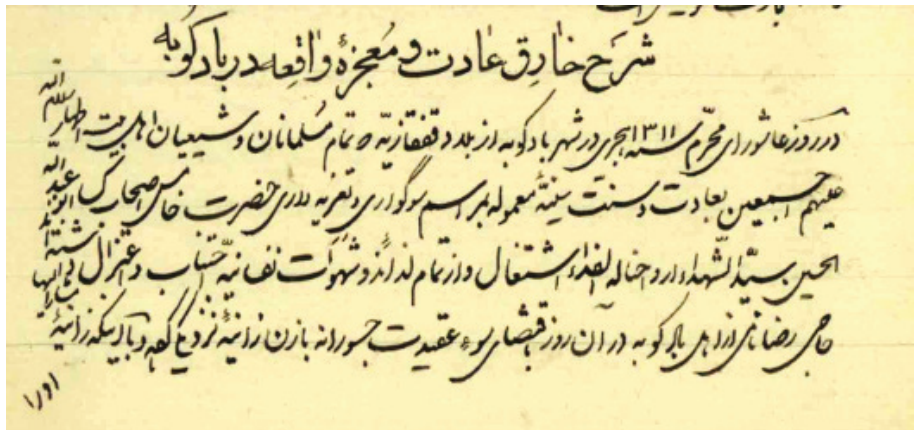 شرح خارق عادت و معجزۀ واقعه در بادکوبه
در روز عاشورای محرّم سنه ۱۳۱۱ هجری در شهر بادکوبه از بلاد قفقازیّه تمام مسلمانان و شیعیان اهل بیت اطهار سلام الله
علیهم اجمعین بعادت و سنت سنیّۀ معموله بمراسم سوگواری و تعزیه داری حضرت خامس اصحاب کسا ابو عبد الله
الحسین سیّد الشهداء ارواحنا له الفداء اشتغال و از تمام لذائذ و شهوات نفسانیّه اجتناب و اعتزال داشته
حاجی رضا نامی از اهل بادکوبه در آن روز بمقتضای سوء عقیدت جسورانه با زن زانیۀ نزدیکی کرده و با آنکه زانیۀ
او را